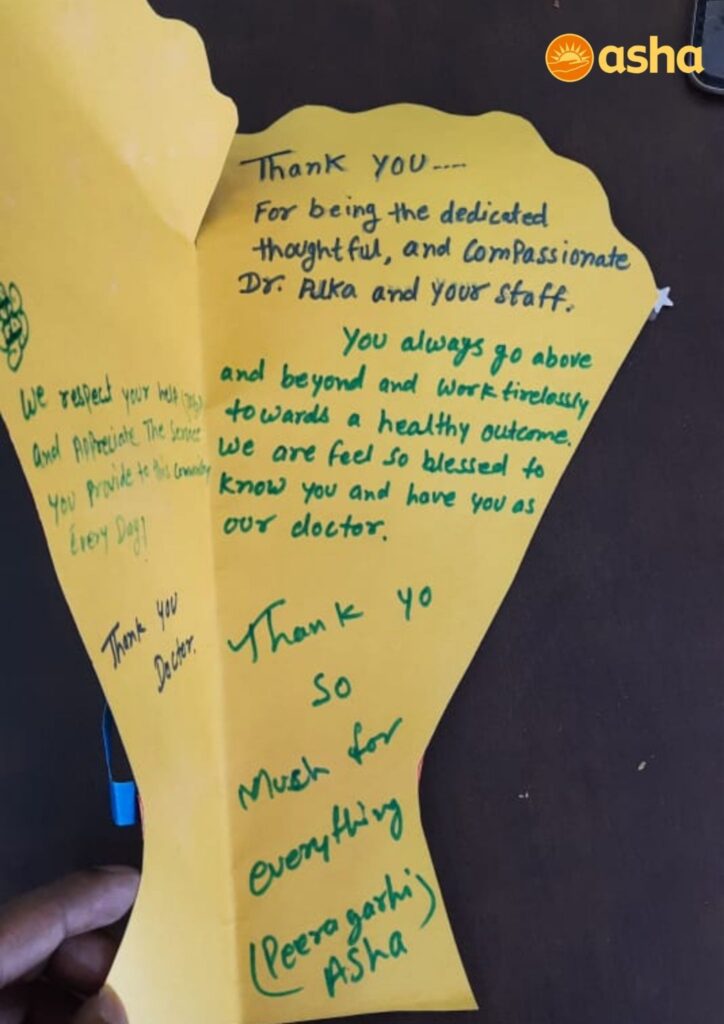 asha
We respect your help
and Appreciate The Service
you provide to this Community
Every Day!
Thank you
Doctor.
Thank you....
For being the dedicated
thoughtful, and compassionate
Dr. Alka and your staff.
You always go above
and beyond and work tirelessly
towards a healthy outcome.
We are feel so blessed to
know you and have you as
our doctor.
Thank yo
so
Much for
everything
(Peeragarhi)
ASha